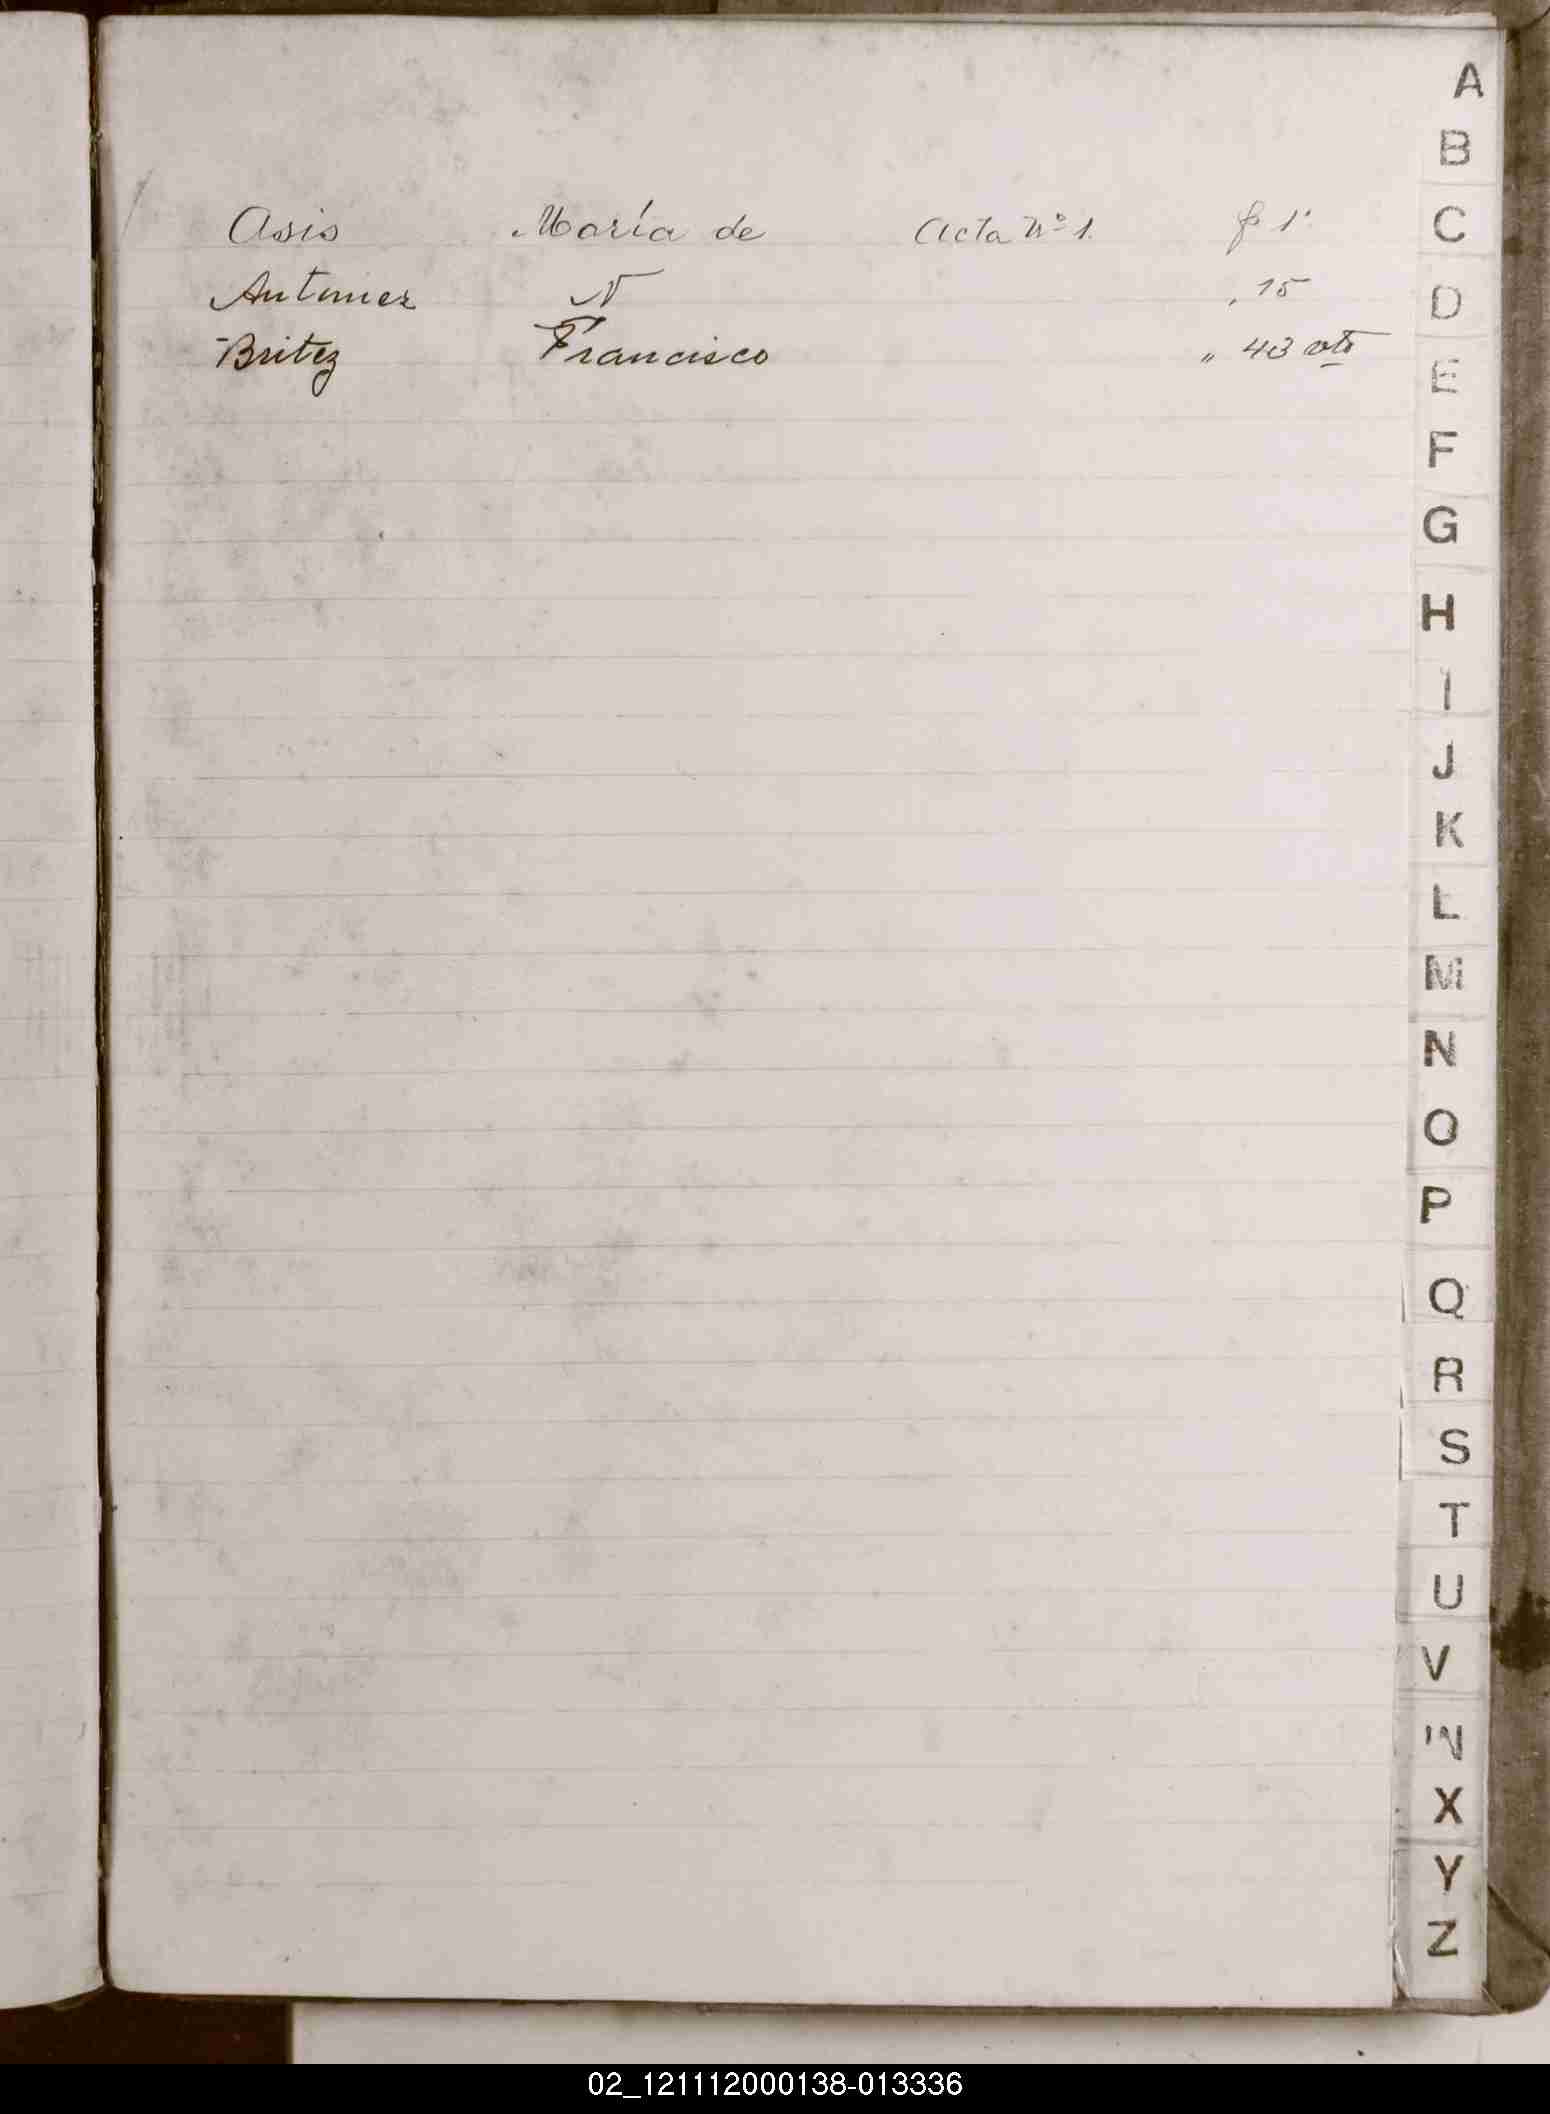 Asis María de Acta Nº 1. f 1.
Antunez N , 15
Britez Francisco „ 43 vto
A
B
C
D
E
F
G
H
I
J
K
L
M
N
O
P
Q
R
S
T
U
V
W
X
Y
Z
02_121112000138-013336